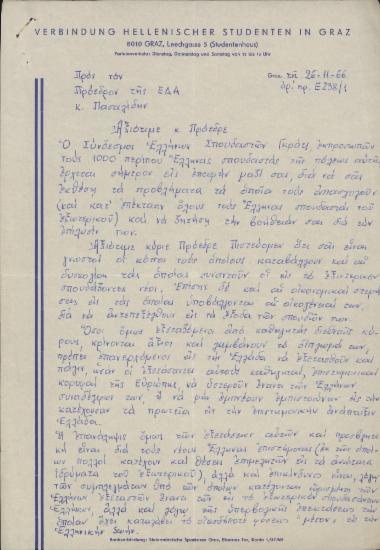 VERBINDUNG HELLENISCHER STUDENTEN IN GRAZ
8010 GRAZ, Leechgasse 5 (Studentenhaus)
Parteienverkehr: Dienstag, Donnerstag und Samstag von 11 bis 13 Uhr
Πρὸς τὸν
Graz τῇ 26-11-66
Πρόεδρον τῆς ΕΔΑ
ἀρ. πρ. Ε298/1
κ. Πασαλίδην
Ἀξιότιμε κ. Πρόεδρε
Ὁ Σύνδεσμος Ἑλλήνων Σπουδαστῶν Γκράτς ἐκπροσωπῶν
τοὺς 1000 περίπου Ἕλληνας σπουδαστὰς τῆς πόλεως αὐτῆς
ἔρχεται σήμερον εἰς ἐπαφὴν μαζί σας, διὰ νὰ σᾶς
ἐκθέσῃ τὰ προβλήματα τὰ ὁποῖα τοὺς ἀπασχολοῦν
(καὶ κατ' ἐπέκτασιν ὅλους τοὺς Ἕλληνας σπουδαστὰς τοῦ
ἐξωτερικοῦ) καὶ νὰ ζητήσῃ τὴν βοήθειάν σας διὰ τὴν
ἐπίλυσίν των.
Ἀξιότιμε κύριε Πρόεδρε Πιστεύομεν ὅτι σᾶς εἶναι
γνωστοὶ οἱ κόποι τοὺς ὁποίους καταβάλλουν καὶ αἱ
δυσκολίαι τὰς ὁποίας συναντοῦν οἱ εἰς τὸ ἐξωτερικὸν
σπουδάζοντες νέοι. Ἐπίσης δὲ καὶ αἱ οἰκονομικαὶ στερή
σεις εἰς τὰς ὁποίας ὑποβάλλονται αἱ οἰκογένειαί των,
διὰ νὰ ἀντεπεξέλθουν εἰς τὰ ἔξοδα τῶν σπουδῶν των.
Ὅσοι ὅμως ἐξεταζόμενοι ἀπὸ καθηγητὰς διεθνοῦς κύ-
ρους, κρίνονται ἄξιοι καὶ λαμβάνουν τὸ δίπλωμά των,
πρέπει ἐπανερχόμενοι εἰς τὴν Ἑλλάδα νὰ ἐξετασθοῦν καὶ
πάλιν, ὡσὰν οἱ ἐξετάσαντες αὐτοὺς καθηγηταί, ἐπιστημονικαὶ
κορυφαὶ τῆς Εὐρώπης, νὰ ὑστεροῦν ἔναντι τῶν Ἑλλήνων
συναδέλφων των, ἢ νὰ μὴν ἐμπνέουν ἐμπιστοσύνην εἰς τὴν
κατέχουσαν τὰ πρωτεῖα εἰς τὴν ἐπιστημονικὴν ἀνάπτυξιν
Ἑλλάδα.
Ἡ ἐπανάληψις ὅμως τῶν ἐξετάσεων αὐτῶν καὶ προσβλητι
κὴ εἶναι διὰ τοὺς νέους Ἕλληνας ἐπιστήμονας (ἐκ τῶν ὁποί-
ων πολλοὶ κατέχουν καὶ θέσεις ἐπιμελητῶν εἰς τὰ ἀνώτατα
ἱδρύματα τοῦ ἐξωτερικοῦ), ἀλλὰ καὶ ἐπικίνδυνος εἶναι, λόγῳ
τῶν συμπλεγμάτων ὑπὸ τῶν ὁποίων κατέχονται
Ἑλλήνων ἐξεταστῶν ἔναντι τῶν εἰς τὸ ἐξωτερικὸν σπουδασάντων
Ἑλλήνων, ἀλλὰ καὶ λόγῳ τῆς ὑπερβολικῆς ἐπεκτάσεως τὴν
ὁποίαν ἔχει καταλάβει τὸ "μέσον" εἰς τὴν
Ἑλληνικὴν ζωήν.
Bankverbindung: Steiermärkische Sparkasse Graz